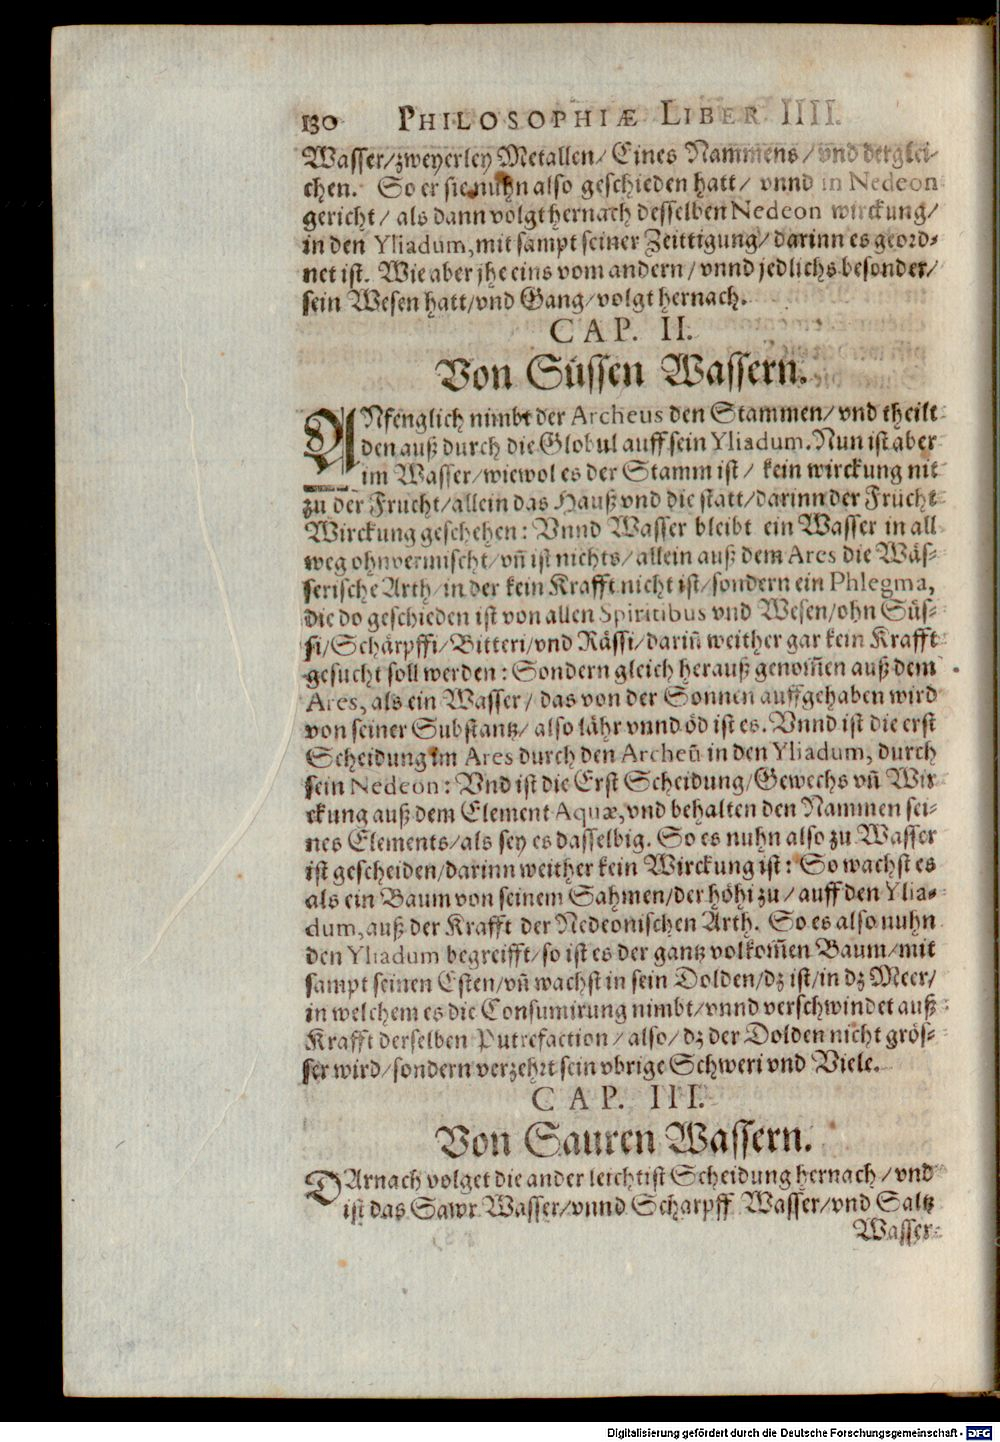 130 PHILOSOPHIÆ LIBER IIII.
Wasser/zweyerley Metallen/ Eines Nammens/vnd derglei-
chen. So er sie nuhn also geschieden hatt/ vnnd in Nedeon
gericht/ als dann volgt hernach desselben Nedeon wirckung/
in den Yliadum, mit sampt seiner Zeittigung/darinn es geord-
net ist. Wie aber jhe eins vom andern/ vnnd jedlichs besonder/
sein Wesen hatt/vnd Gang/volgt hernach.
CAP. II.
Von Süssen Wassern.
ANfenglich nimbt der Archeus den Stammen/ vnd theilt
den auß durch die Globul auff sein Yliadum. Nun ist aber
im Wasser/wiewol es der Stamm ist/ kein wirckung nit
zu der Frucht/allein das Hauß vnd die statt/darinn der Frücht
Wirckung geschehen: Vnnd Wasser bleibt ein Wasser in all
weg ohnvermischt/vñ ist nichts/ allein auß dem Ares die Wäs-
serische Arth/ in der kein Krafft nicht ist/sondern ein Phlegma,
die do geschieden ist von allen Spiritibus vnd Wesen/ohn Süs-
si/Schärpffi/Bitteri/vnd Rässi/dariñ weither gar kein Krafft
gesucht soll werden: Sondern gleich herauß genom̃en auß dem
Ares, als ein Wasser/ das von der Sonnen auffgehaben wird
von seiner Substantz/ also lähr vnnd öd ist es. Vnnd ist die erst
Scheidung im Ares durch den Archeũ in den Yliadum, durch
sein Nedeon: Vnd ist die Erst Scheidung/Gewechs vñ Wir-
ckung auß dem Element Aquæ, vnd behalten den Nammen sei-
nes Elements/als sey es dasselbig. So es nuhn also zu Wasser
ist gescheiden/darinn weither kein Wirckung ist: So wachst es
als ein Baum von seinem Sahmen/der höhi zu/ auff den Ylia-
dum, auß der Krafft der Nedeonischen Arth. So es also nuhn
den Yliadum begreifft/so ist es der gantz volkom̃en Baum/mit
sampt seinen Esten/vñ wachst in sein Dolden/dz ist/in dz Meer/
in welchem es die Consumirung nimbt/vnnd verschwindet auß
Krafft derselben Putrefaction/ also/ dz der Dolden nicht grös-
ser wird/sondern verzehrt sein vbrige Schweri vnd Viele.
CAP. III.
Von Sauren Wassern.
DArnach volget die ander leichtist Scheidung hernach/vnd
ist das Sawr Wasser/vnnd Scharpff Wasser/vnd Saltz
Wasser-
Digitalisierung gefördert durch die Deutsche Forschungsgemeinschaft - DFG